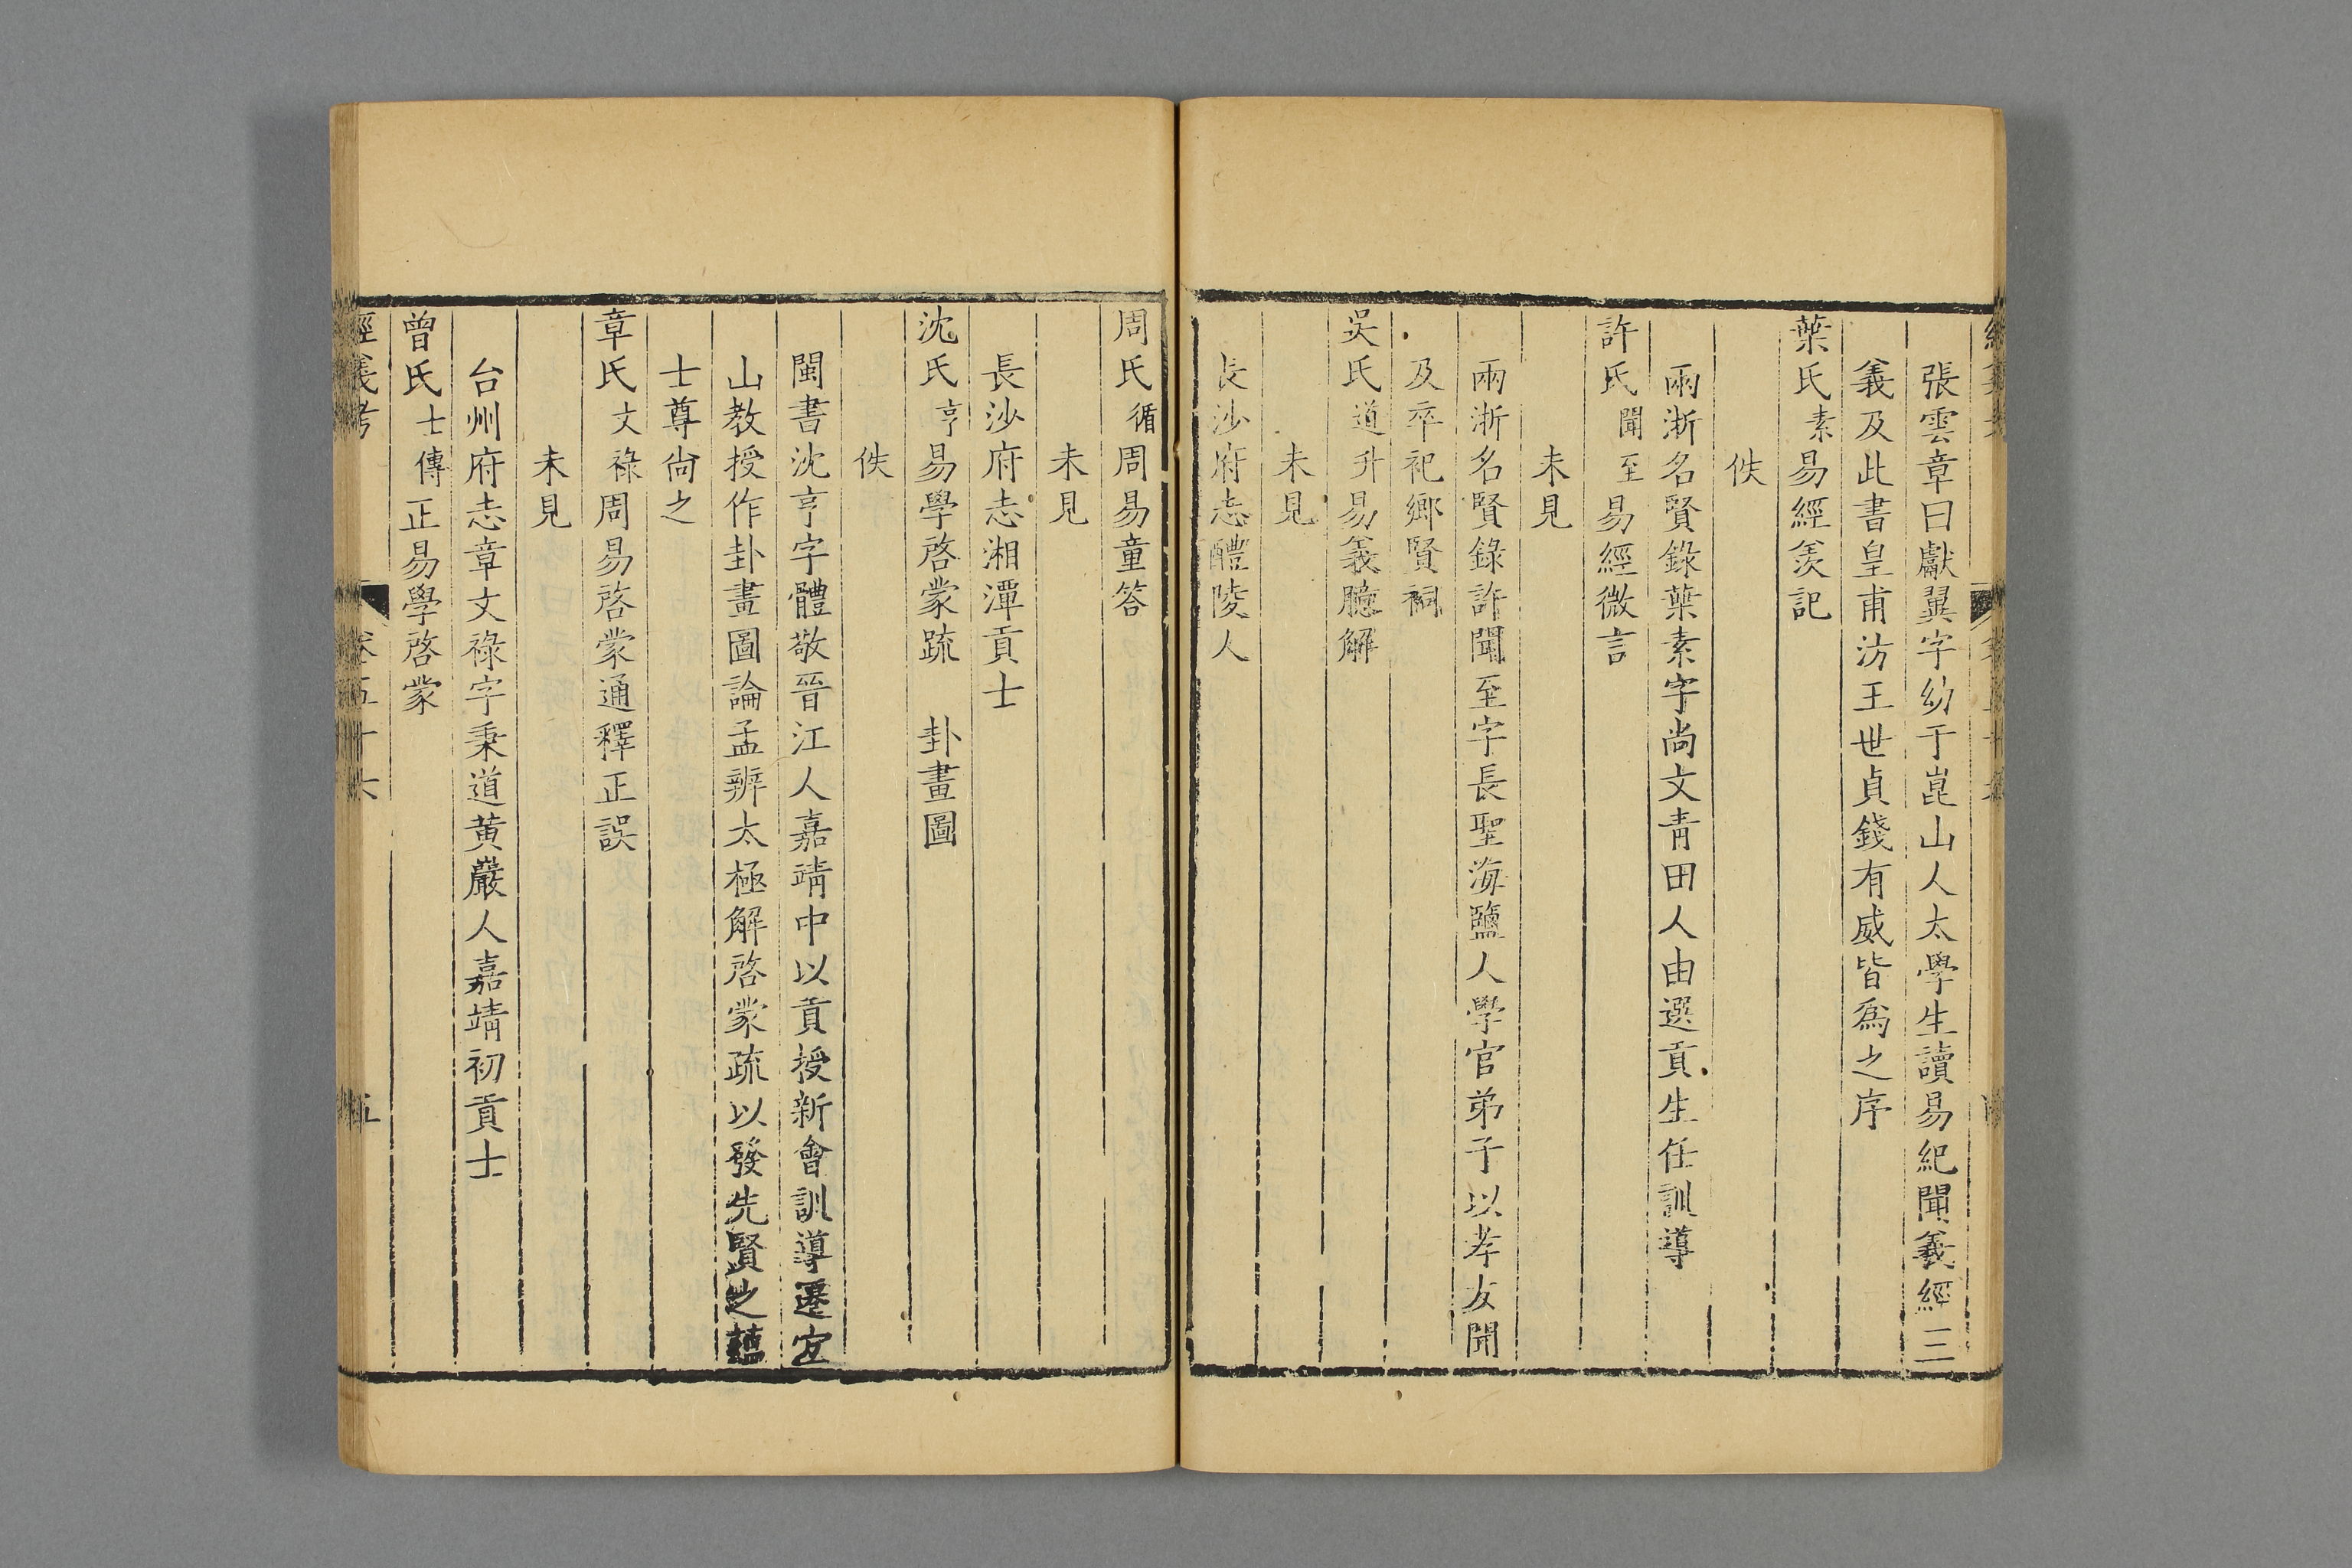 張雲章曰獻翼字幼于崑山人太學生讀易紀聞義經三
義及此書皇甫汸王世貞錢有威皆爲之序
葉氏素易經羡記
佚
兩浙名賢錄葉素字尚文青田人由選貢生任訓導
許氏聞至易經微言
未見
兩浙名賢錄許聞至字長聖海鹽人學官弟子以孝友聞
及卒祀鄉賢祠
吳氏道升易義臆解
未見
長沙府志醴陵人
周氏循周易童答
未見
長沙府志湘潭貢士
沈氏亨易學啓蒙疏 卦畫圖
佚
閩書沈亨字體敬晉江人嘉靖中以貢授新會訓導遷宜
山教授作卦畫圖論孟辨太極解啓蒙疏以發先賢之蘊
士尊尚之
章氏文祿周易啓蒙通釋正誤
未見
台州府志章文祿字秉道黄巖人嘉靖初貢士
曾氏士傳正易學啓蒙
經義考 卷五十六 五